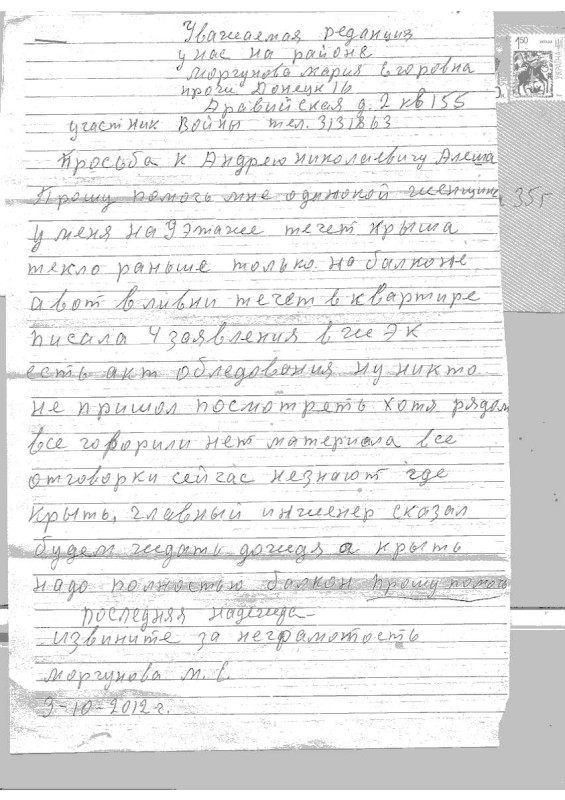 Уважаемая реданция
у нас на районе
Моргунова Мария Егоровна
прож Донецк 16
Аравийская д. 2 кв 155
участник Войны тел. 3131863
Просьба к Андрею Николаевичу Алёша
Прошу помочь мне одинокой женщине, 35г
у меня на 9 этаже течет крыша
текло раньше только на балконе
а вот в ливни течет в квартире
писала 4 заявления в ЖЭК
есть акт обледования ну никто
не пришол посмотреть хотя рядом
все говорили нет материала все
отговорки сейчас незнают где
крыть, главный инженер сказал
будем ждать дождя а крыть
надо полностью балкон прошу помочь
последняя надежда
извините за неграмотость
Моргунова М. Е.
3-10-2012 г.
1 50